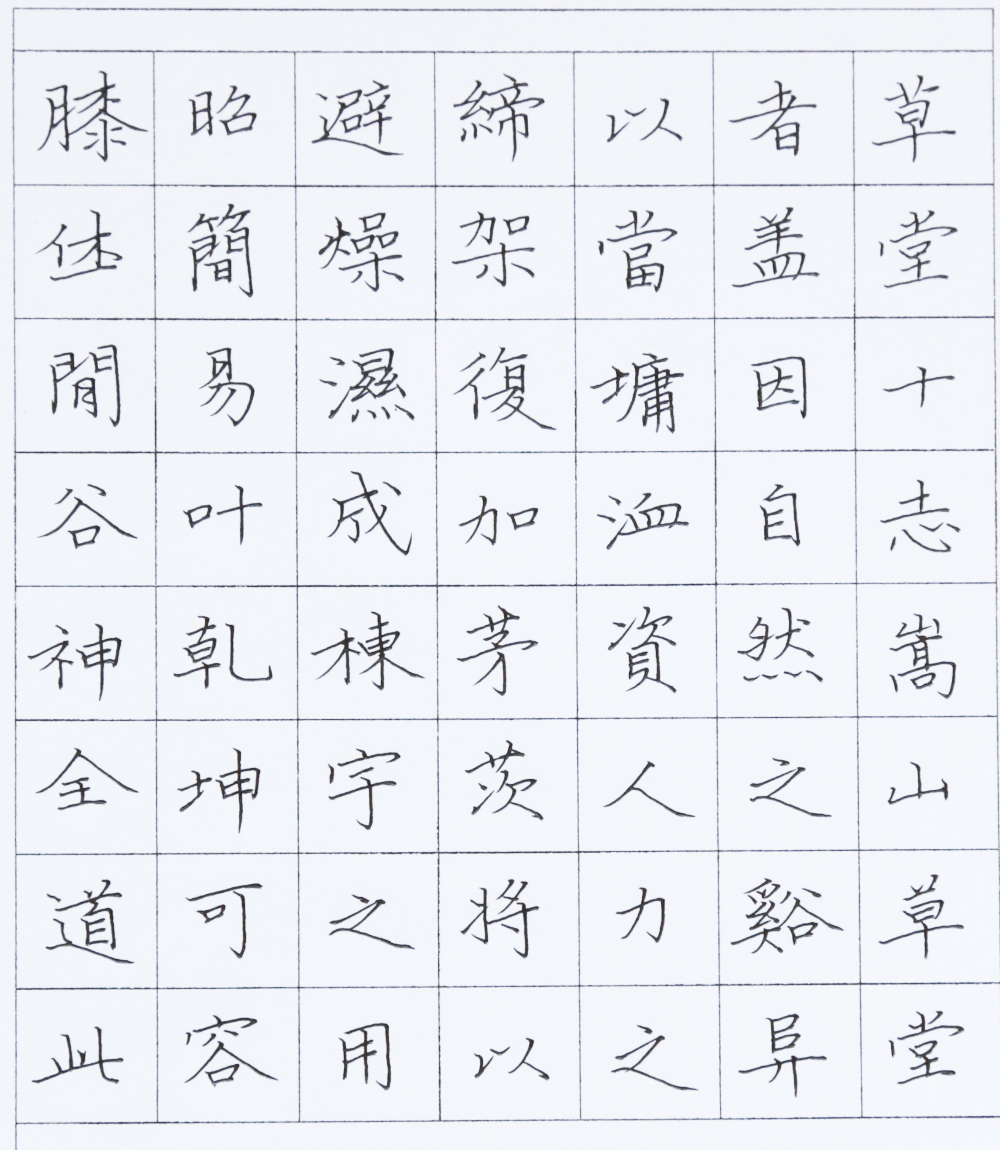 草堂十志嵩山草堂
者盖因自然之谿阜
以當墉洫資人力之
締架復加茅茨將以
避燥濕成棟宇之用
昭簡易叶乾坤可容
膝休閒谷神全道此